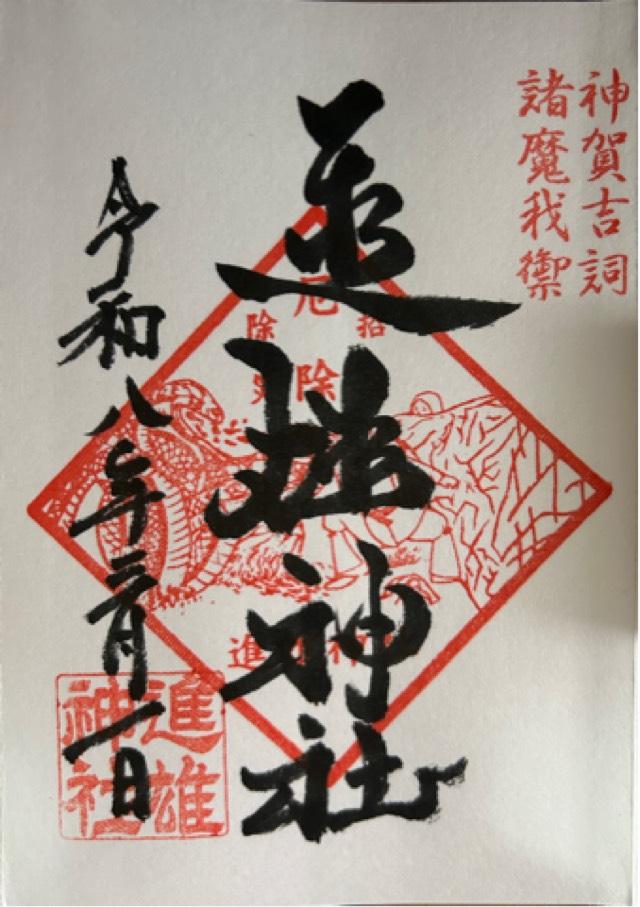 神賀吉詞
諸魔我禦
進雄神社
令和八年二月一日
招
厄除
除災
進雄
神社